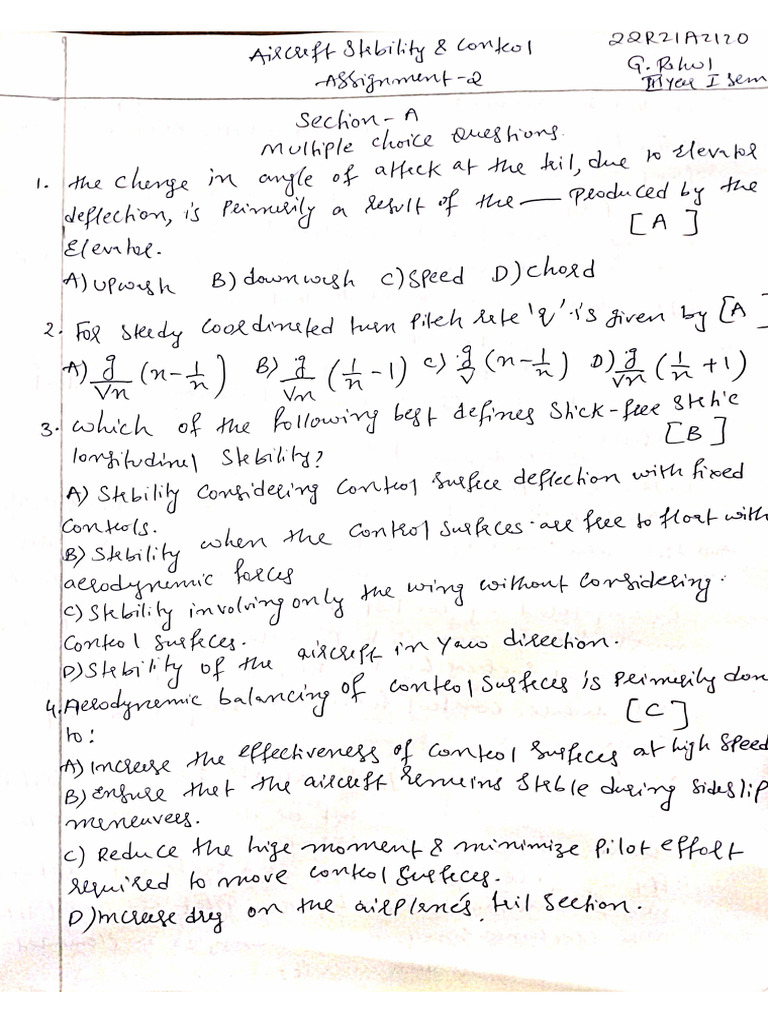 Aircraft Stability & Control
22R21A2120
Assignment-2
G. Rahul
III year I Sem
Section-A
Multiple choice Questions.
1. the change in angle of attack at the tail, due to elevator
deflection, is Primarily a result of the — Produced by the
Elevator.
[A]
A) upwash B) downwash C) Speed D) Chord
2. For steady coordinated turn Pitch rate 'q' is given by [A]
A) g/Vn (n-1/n) B) g/Vn (1/n -1) C) g/V (n-1/n) D) g/Vn (1/n +1)
3. which of the following best defines Stick-free static
longitudinal Stability?
[B]
A) Stability Considering Control Surface deflection with fixed
Controls.
B) Stability when the Control Surfaces are free to float with
aerodynamic forces
C) Stability involving only the wing without Considering.
Control Surfaces.
D) Stability of the aircraft in Yaw direction.
4. Aerodynamic balancing of Control Surfaces is Primarily don
to:
[C]
A) increase the effectiveness of Control Surfaces at high Speed
B) Ensure that the aircraft remains Stable during sideslip
maneuvers.
C) Reduce the hige moment & minimize Pilot effort
required to move Control Surfaces.
D) Increase drag on the airplane's tail section.